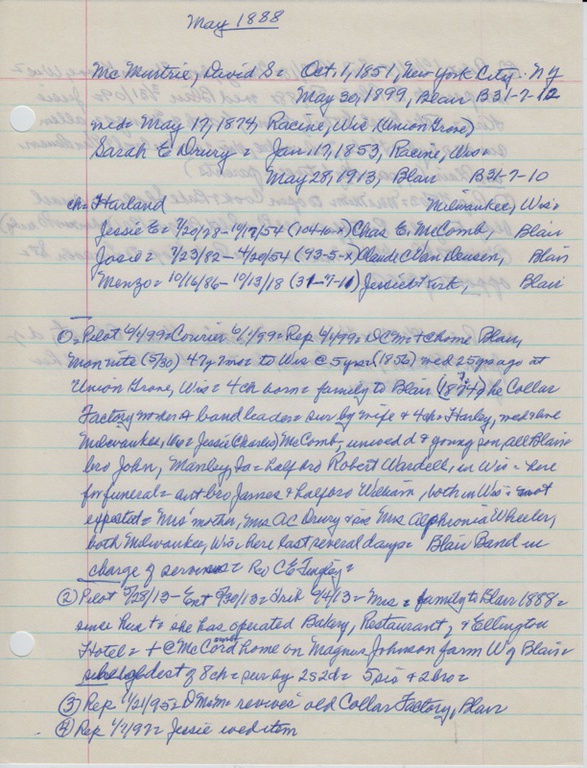 May 1888
Mc Murtrie, David S = Oct. 1, 1851, New York City, NY
May 30, 1899, Blair B31-7-12
wed = May 17, 1874, Racine, Wis (Union Grove)
Sarah E Drury = Jan. 17, 1853, Racine, Wis =
May 28, 1913, Blair B31-7-10
ch = Harland Milwaukee, Wis =
Jessie E = 7/20/78 - 10/19/54 Chas E. McComb, Blair
Josie = 7/23/82 - 4/20/54 (93-5-X) Claude C Van Deusen, Blair
Menzo = 10/16/86 - 10/13/18 (31-7-11) Jessie Kirk, Blair
① = Pilot 6/1/99 = Courier 6/1/99 = Rep 6/1/99 = D C Mc = t home Blair,
Mon nite (5/30) 47y 7mo = to Wis @ 5 yrs (1856) wed 25 yrs ago at
Union Grove, Wis = 4 ch born = family to Blair he Collar
Factory & band leader = sur by wife & 4 ch = Harley,
Milwaukee, Wis = Jessie (Charles) McComb, unwed d & young son, all Blair =
bro John, Manley, Ia = half bro Robert Wardell, in Wis = here
for funeral = bro James & half bro William, both in Wis = not
expected = Mrs' mother, Mrs A C Drury & sis Mrs Alphronia Wheeler,
both Milwaukee, Wis = here last several days = Blair Band in
charge of services = Rev C E Tingley =
② Pilot 5/28/13 - Ent 5/30/13 = Trib 6/4/13 = Mrs = family to Blair 1888 =
since then she has operated Bakery, Restaurant, & Ellington
Hotel = t @ McCord home on Magnus Johnson farm W of Blair =
oldest of 8 ch = sur by 2s 2d = 5 sis & 2 bro =
③ Rep 1/21/95 = D Mc M = revives old Collar Factory, Blair
④ Rep 1/7/97 = Jessie wed item